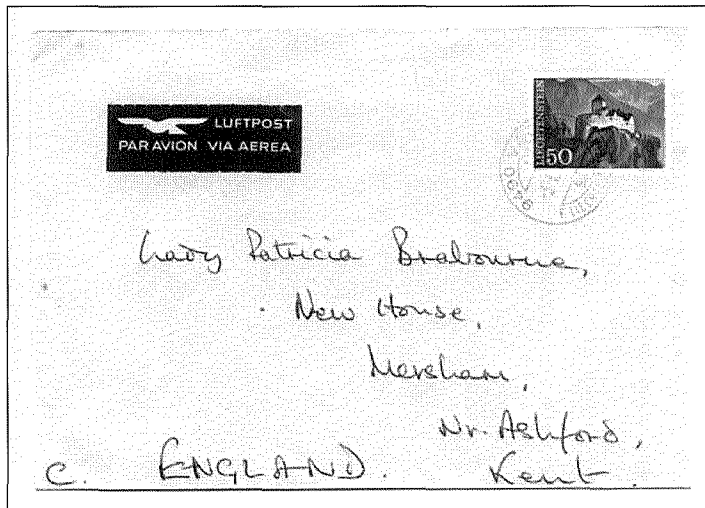 LUFTPOST
PAR AVION VIA AEREA
LIECHTENSTEIN
50
9490
Lady Patricia Brabourne,
New House,
Mersham,
Nr. Ashford,
C. ENGLAND. Kent.